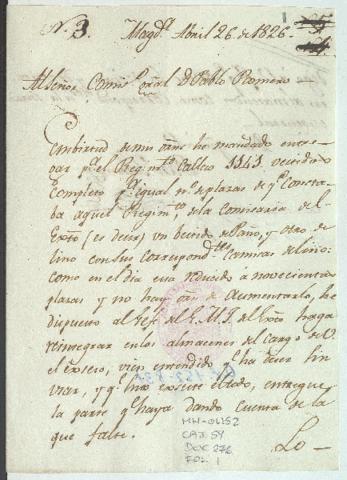 N. 3.
Magd.ª Abril 26 de 1826.
Al Señor Comis.º gral D. Pablo Romero
En virtud de mi orn he mandado entre
gar p.ª el Regim.to Callao 1343 vestidos
completos p.r igual n.º de plazas de q.e consta
ba aquel Regim.to, de la Comisaria del
Exto (es decir) un vestido de Paño, y otro de
lino con sus correspond.tes camisas de lino:
como en el dia esta reducido á novecientas
plazas y no hay orn de aumentarlo, he
dispuesto al Gefe del E. M. J. del Exto haga
reintegrar en los almacenes del cargo de V.
el exseso, vien entendido q.e ha de ser sin
usar, y q.e si no exsiste el todo, entregue
la parte q.e haya dando cuenta de la
que falte.
Lo
MH-06152
CAJ. 54
DOC 276
FOL. 1